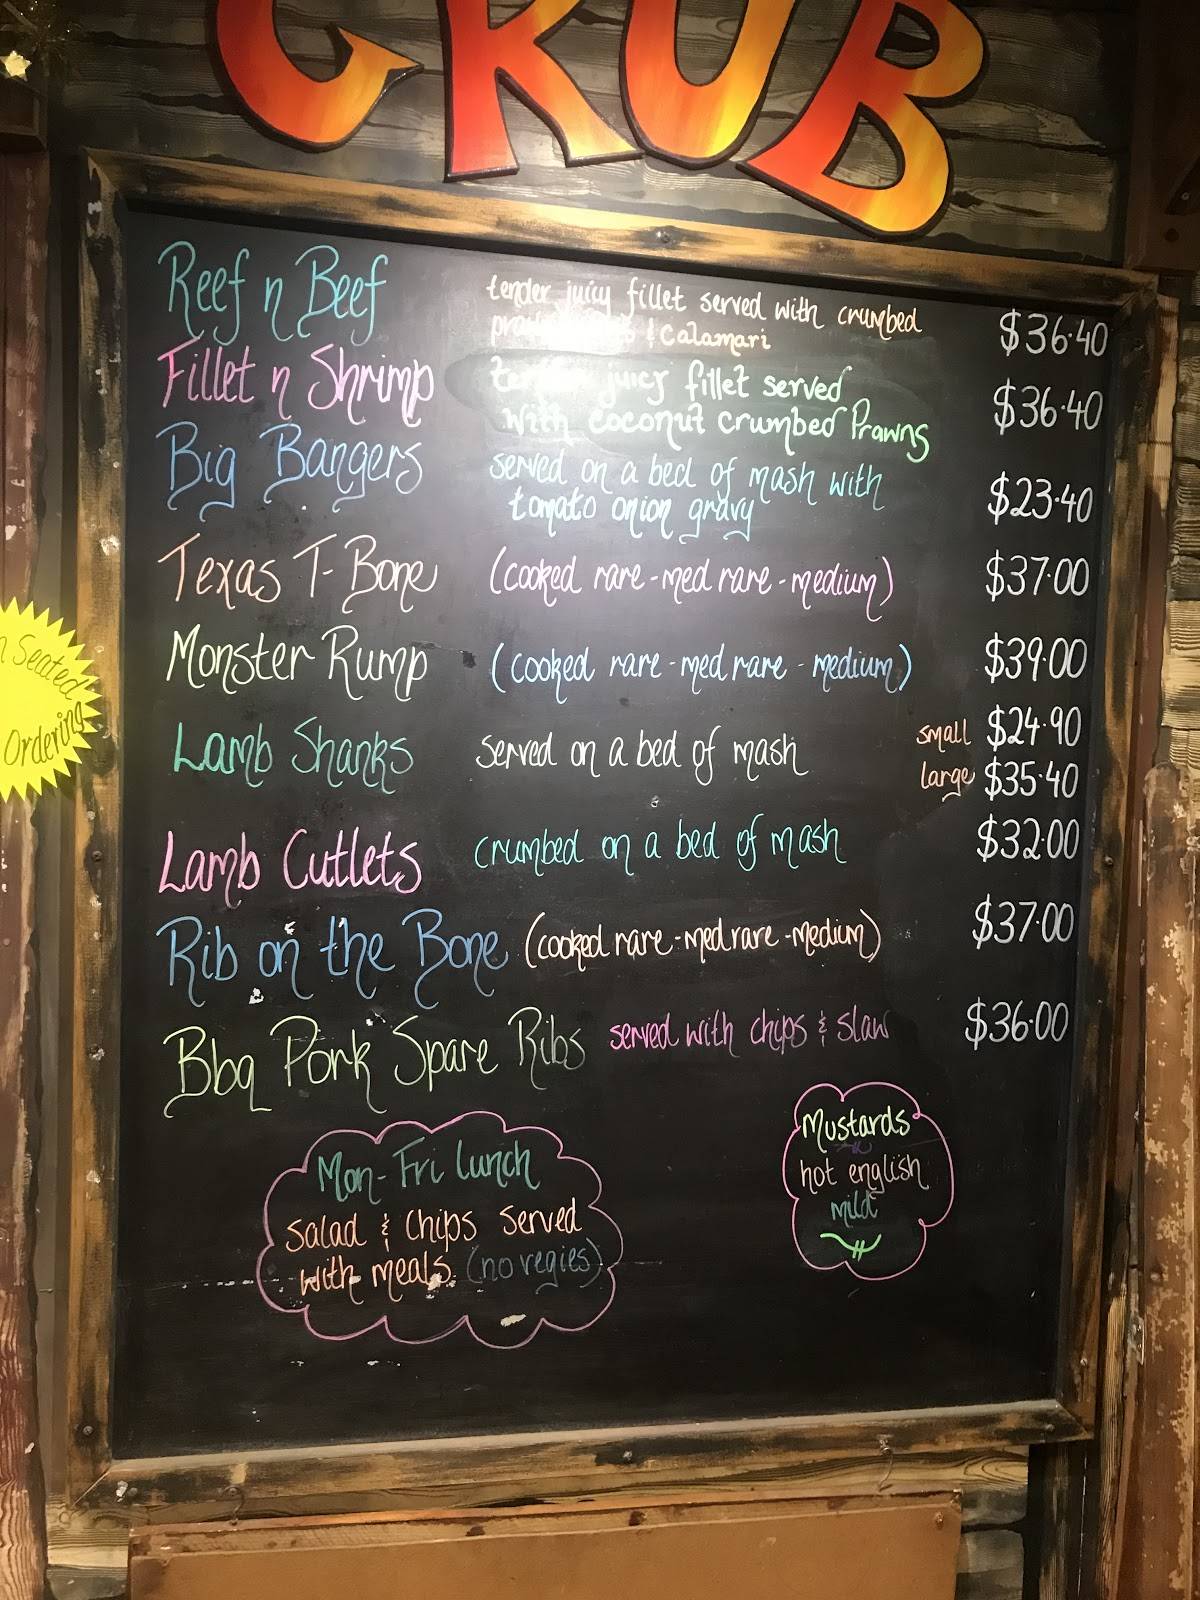 GRUB
Reef n Beef
tender juicy fillet served with crumbed
& Calamari
$36.40
Fillet n Shrimp
tender juicy fillet served
with coconut crumbed Prawns
$36.40
Big Bangers
served on a bed of mash with
tomato onion gravy
$23.40
Texas T-Bone
(cooked rare-med rare-medium)
$37.00
Monster Rump
(cooked rare-med rare-medium)
$39.00
Lamb Shanks
served on a bed of mash
small $24.90
large $35.40
Lamb Cutlets
crumbed on a bed of mash
$32.00
Rib on the Bone
(cooked rare-med rare-medium)
$37.00
Bbq Pork Spare Ribs
served with chips & slaw
$36.00
Mon-Fri lunch
salad & chips served
with meals (no vegies)
Mustards
hot english
mild
Seated
Ordering